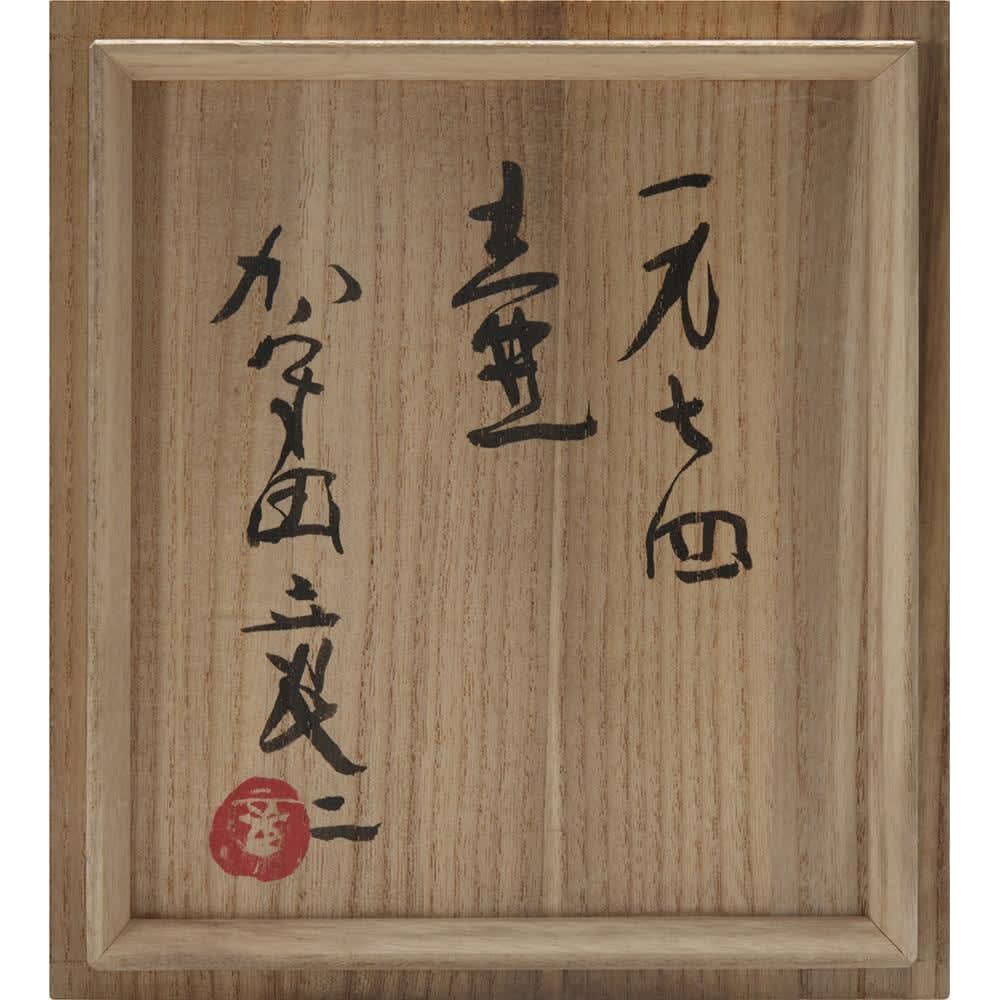 一九七四
壷
加守田章二